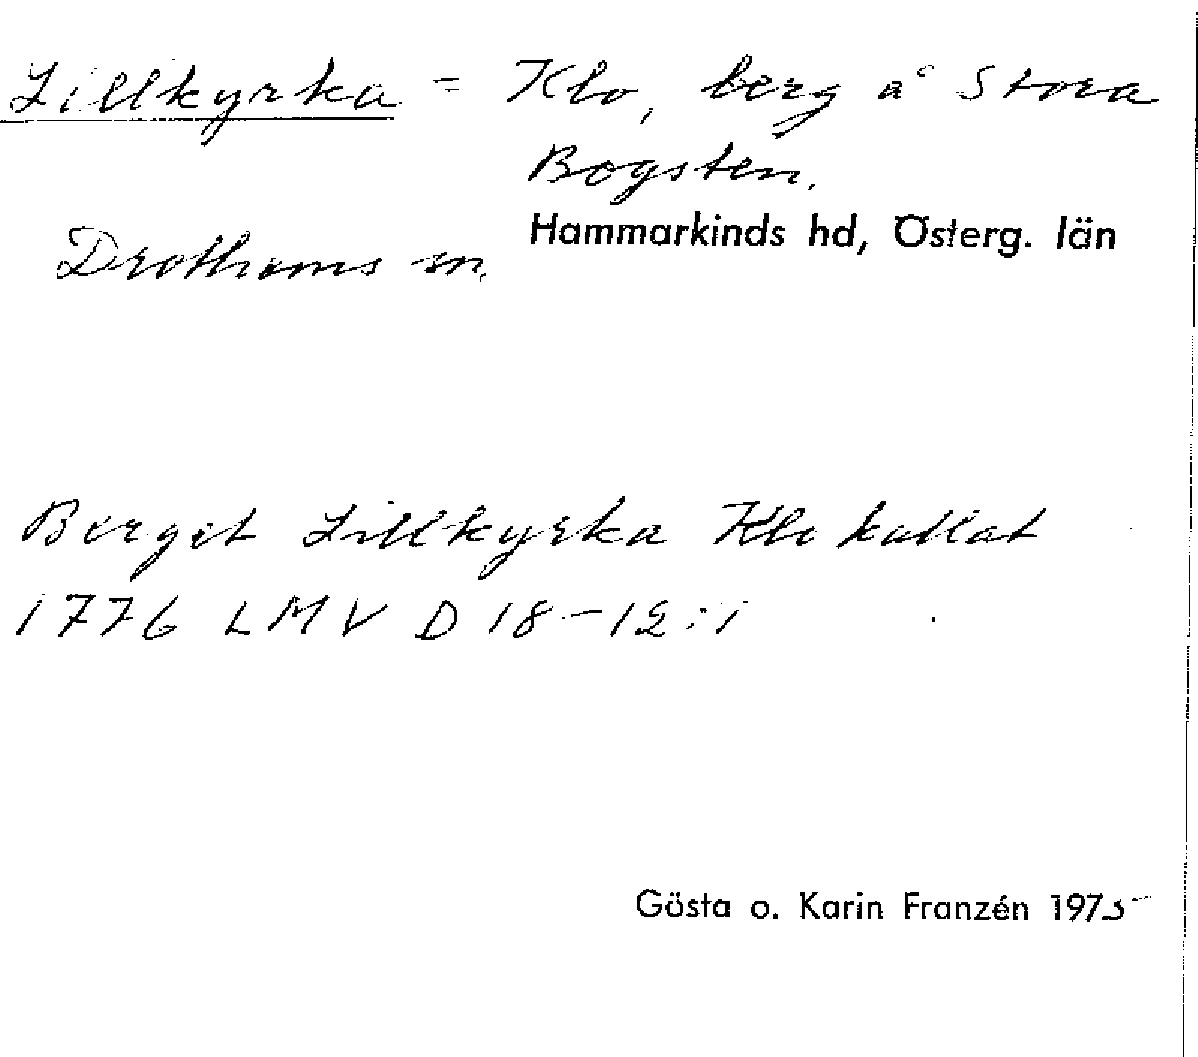 Lillkyrka = Klo, berg å Stora
Bogsten.
Drothems sn. Hammarkinds hd, Österg. län
Berget Lillkyrka Klo kallat
1776 LMV D 18-12:1
Gösta o. Karin Franzén 1975